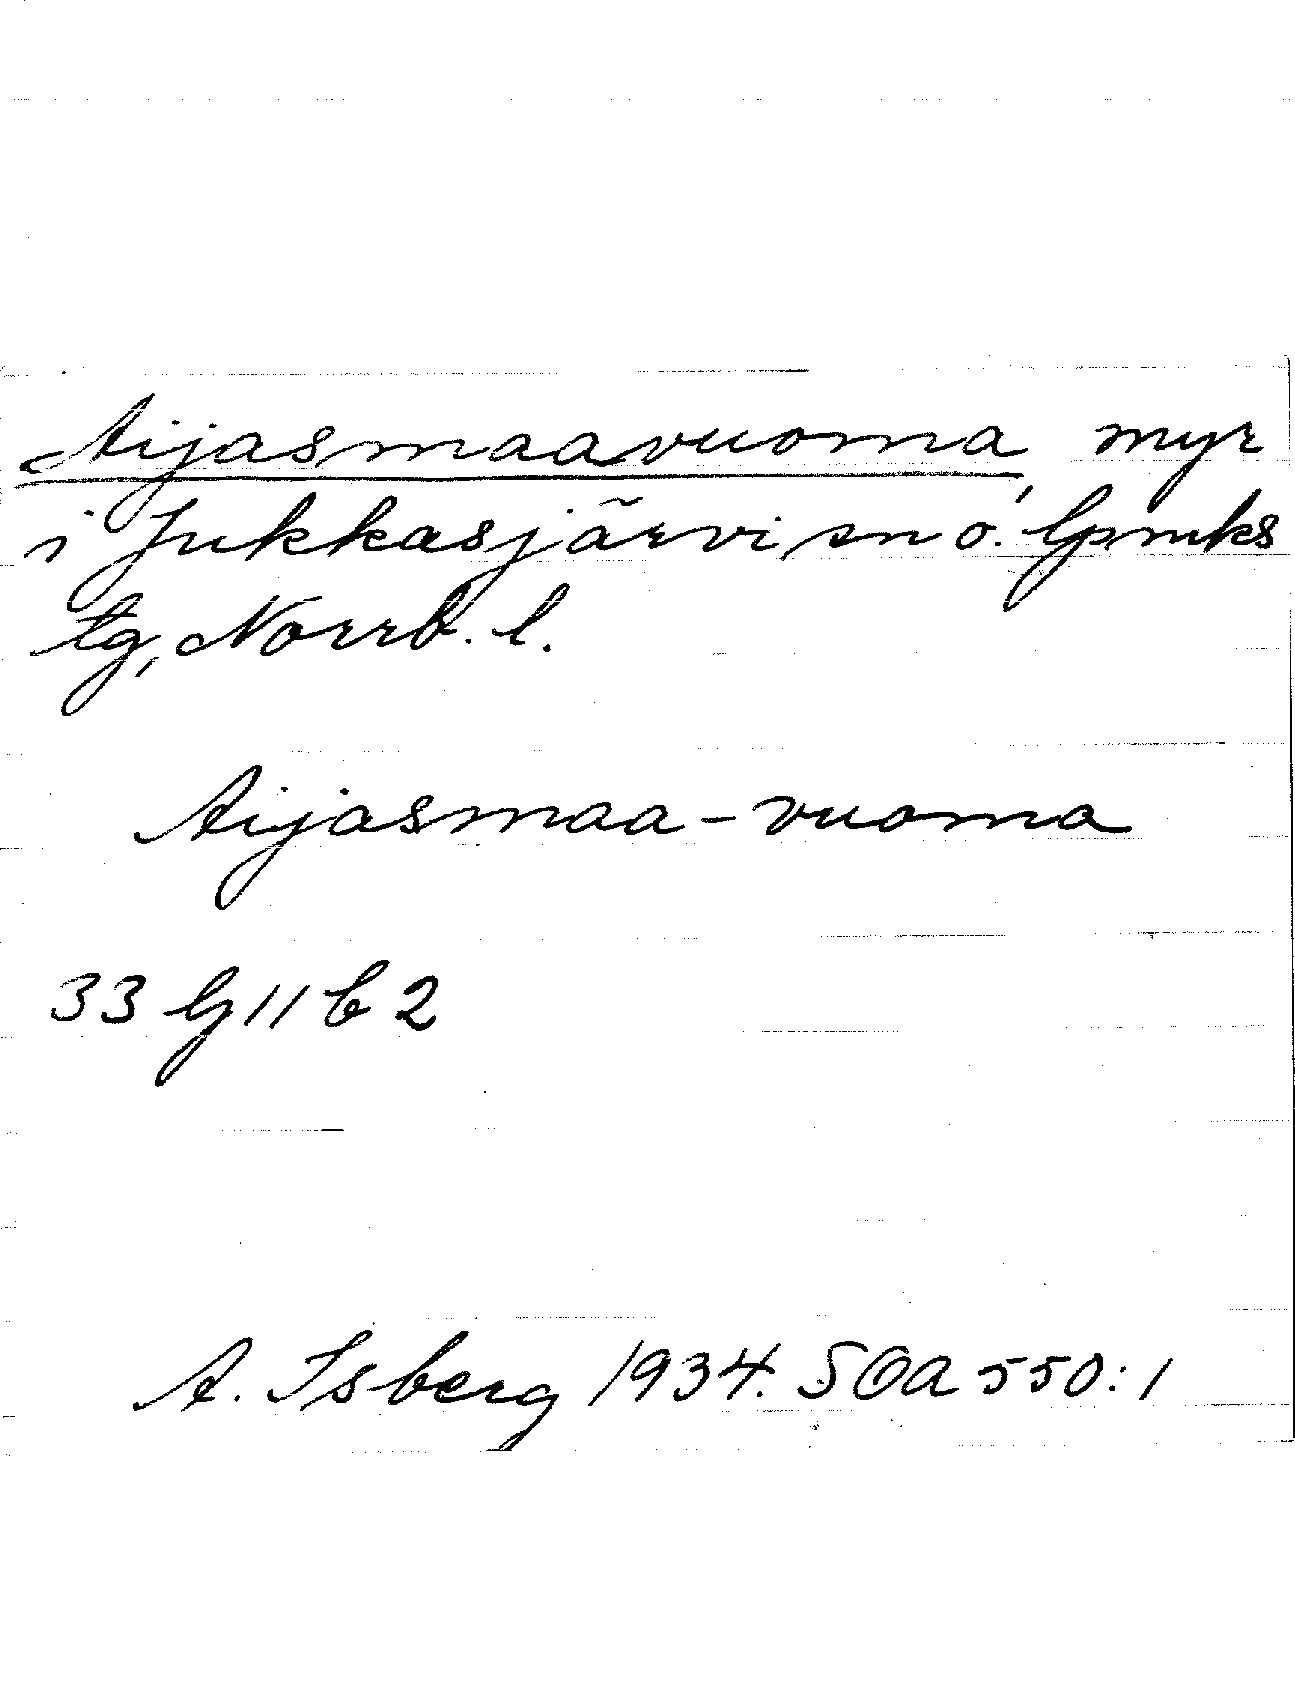 Aijasmaavuoma, myr
i Jukkasjärvi sn o. lpmks
tg, Norrb. l.
Aijasmaa-vuoma
33 G 11 b 2
A. Isberg 1934. SOA 550:1